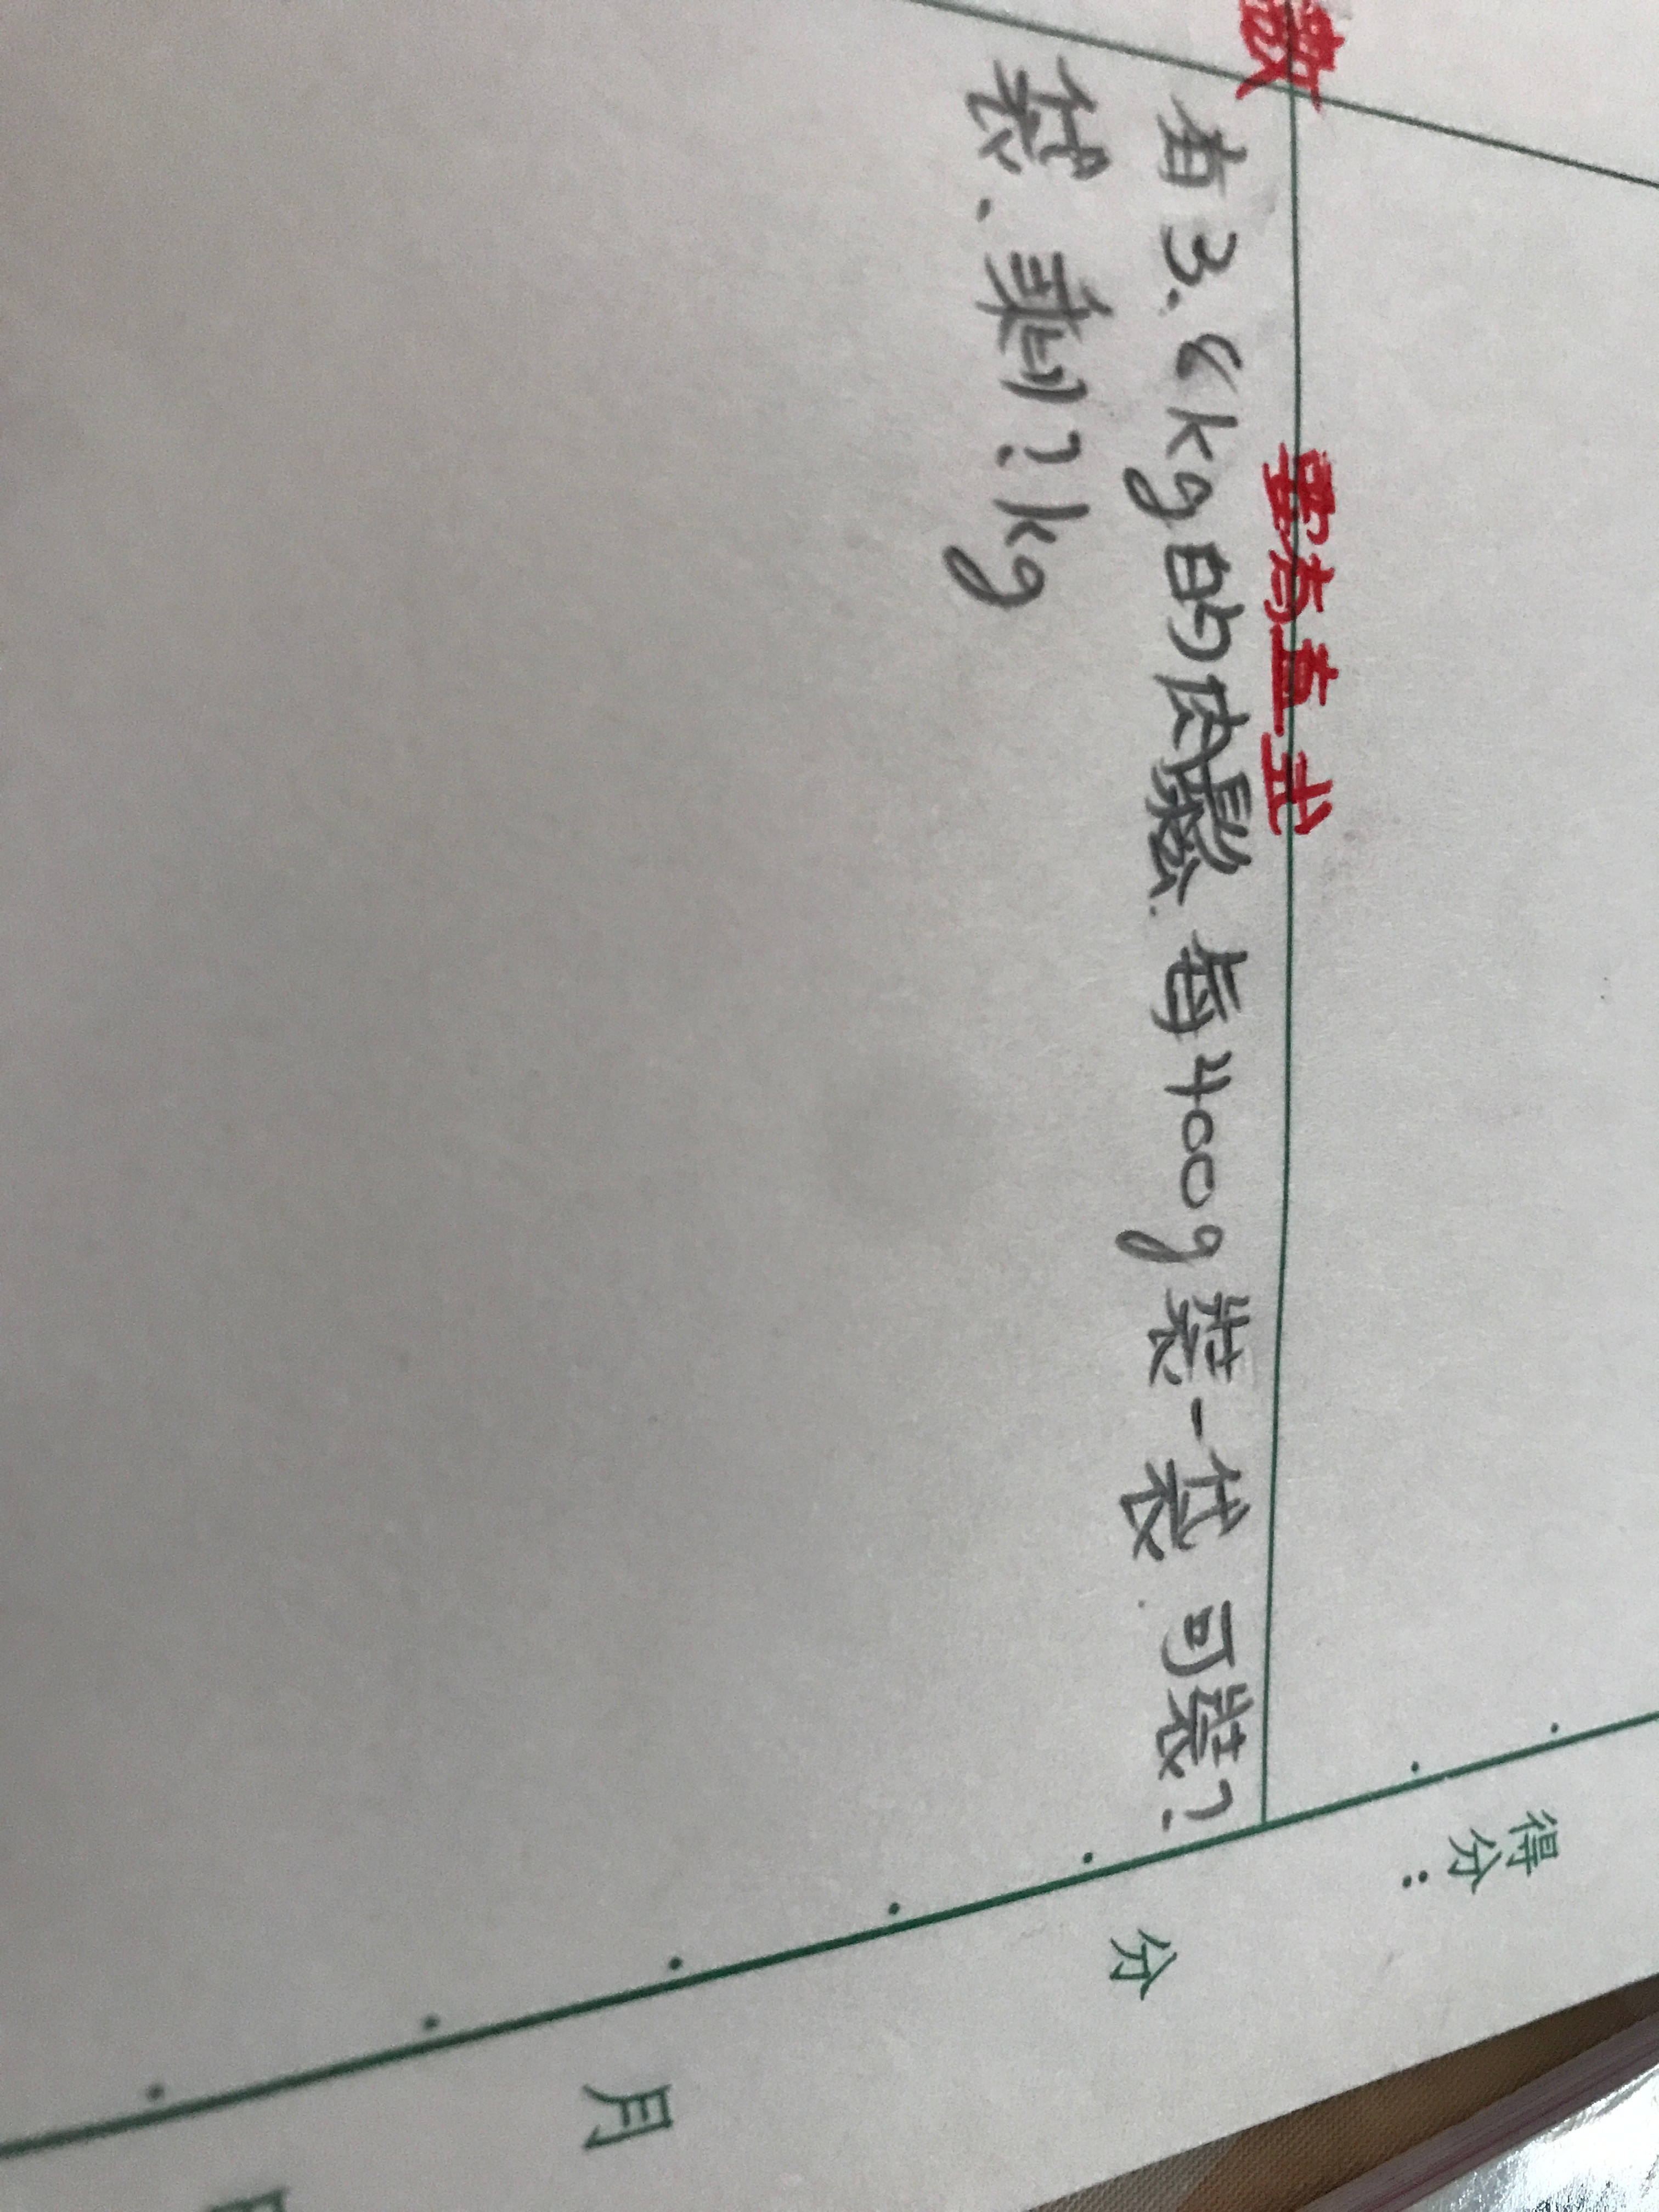 數
要有直式
有3.8kg的肉鬆.每400g裝一袋.可裝?
袋、剩?kg
得分:
分
月